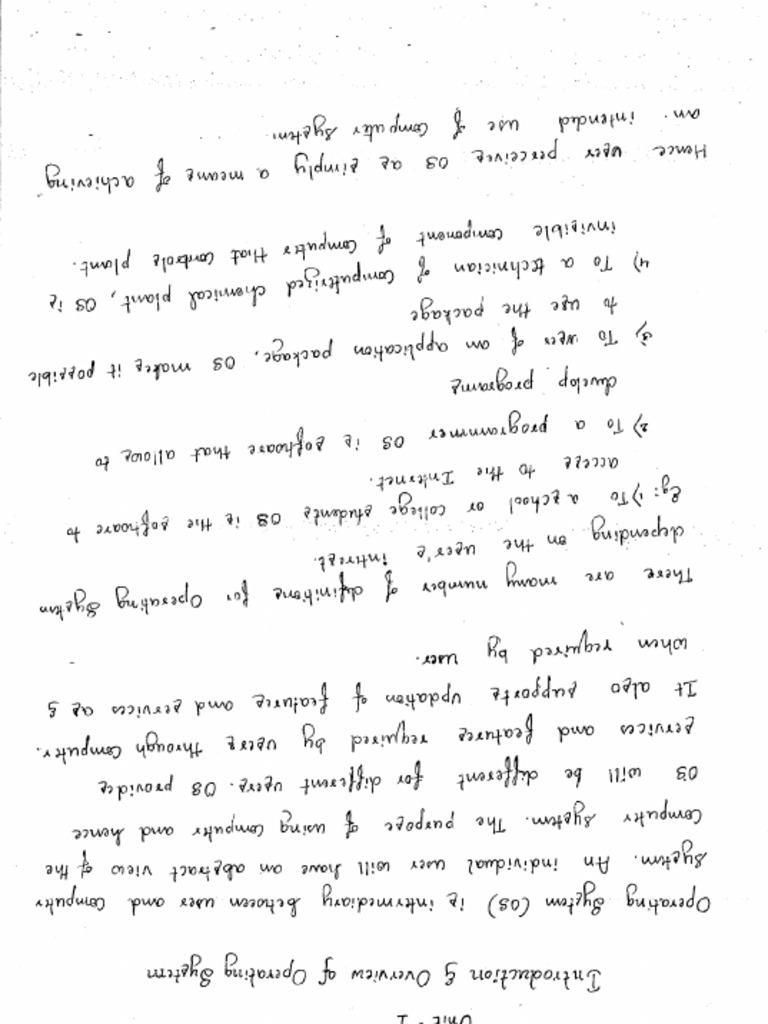 Unit - I
Introduction & Overview of Operating System
Operating System (OS) is intermediary between user and Computer
System. An individual user will have an abstract view of the
Computer System. The purpose of using Computer and hence
OS will be different for different users. OS provides
services and features required by users through Computer.
It also supports updation of features and services as &
when required by user.
There are many number of definitions for Operating System
depending on the user's intrest.
Eg: 1) To a school or college students OS is the software to
access to the Internet.
2) To a programmer OS is software that allows to
develop programs
3) To user of an application package, OS makes it possible
to use the package
4) To a technician of Computerized chemical plant, OS is
invisible component of Computer that controls plant.
Hence user perceives OS as simply a means of achieving
an intended use of Computer System.